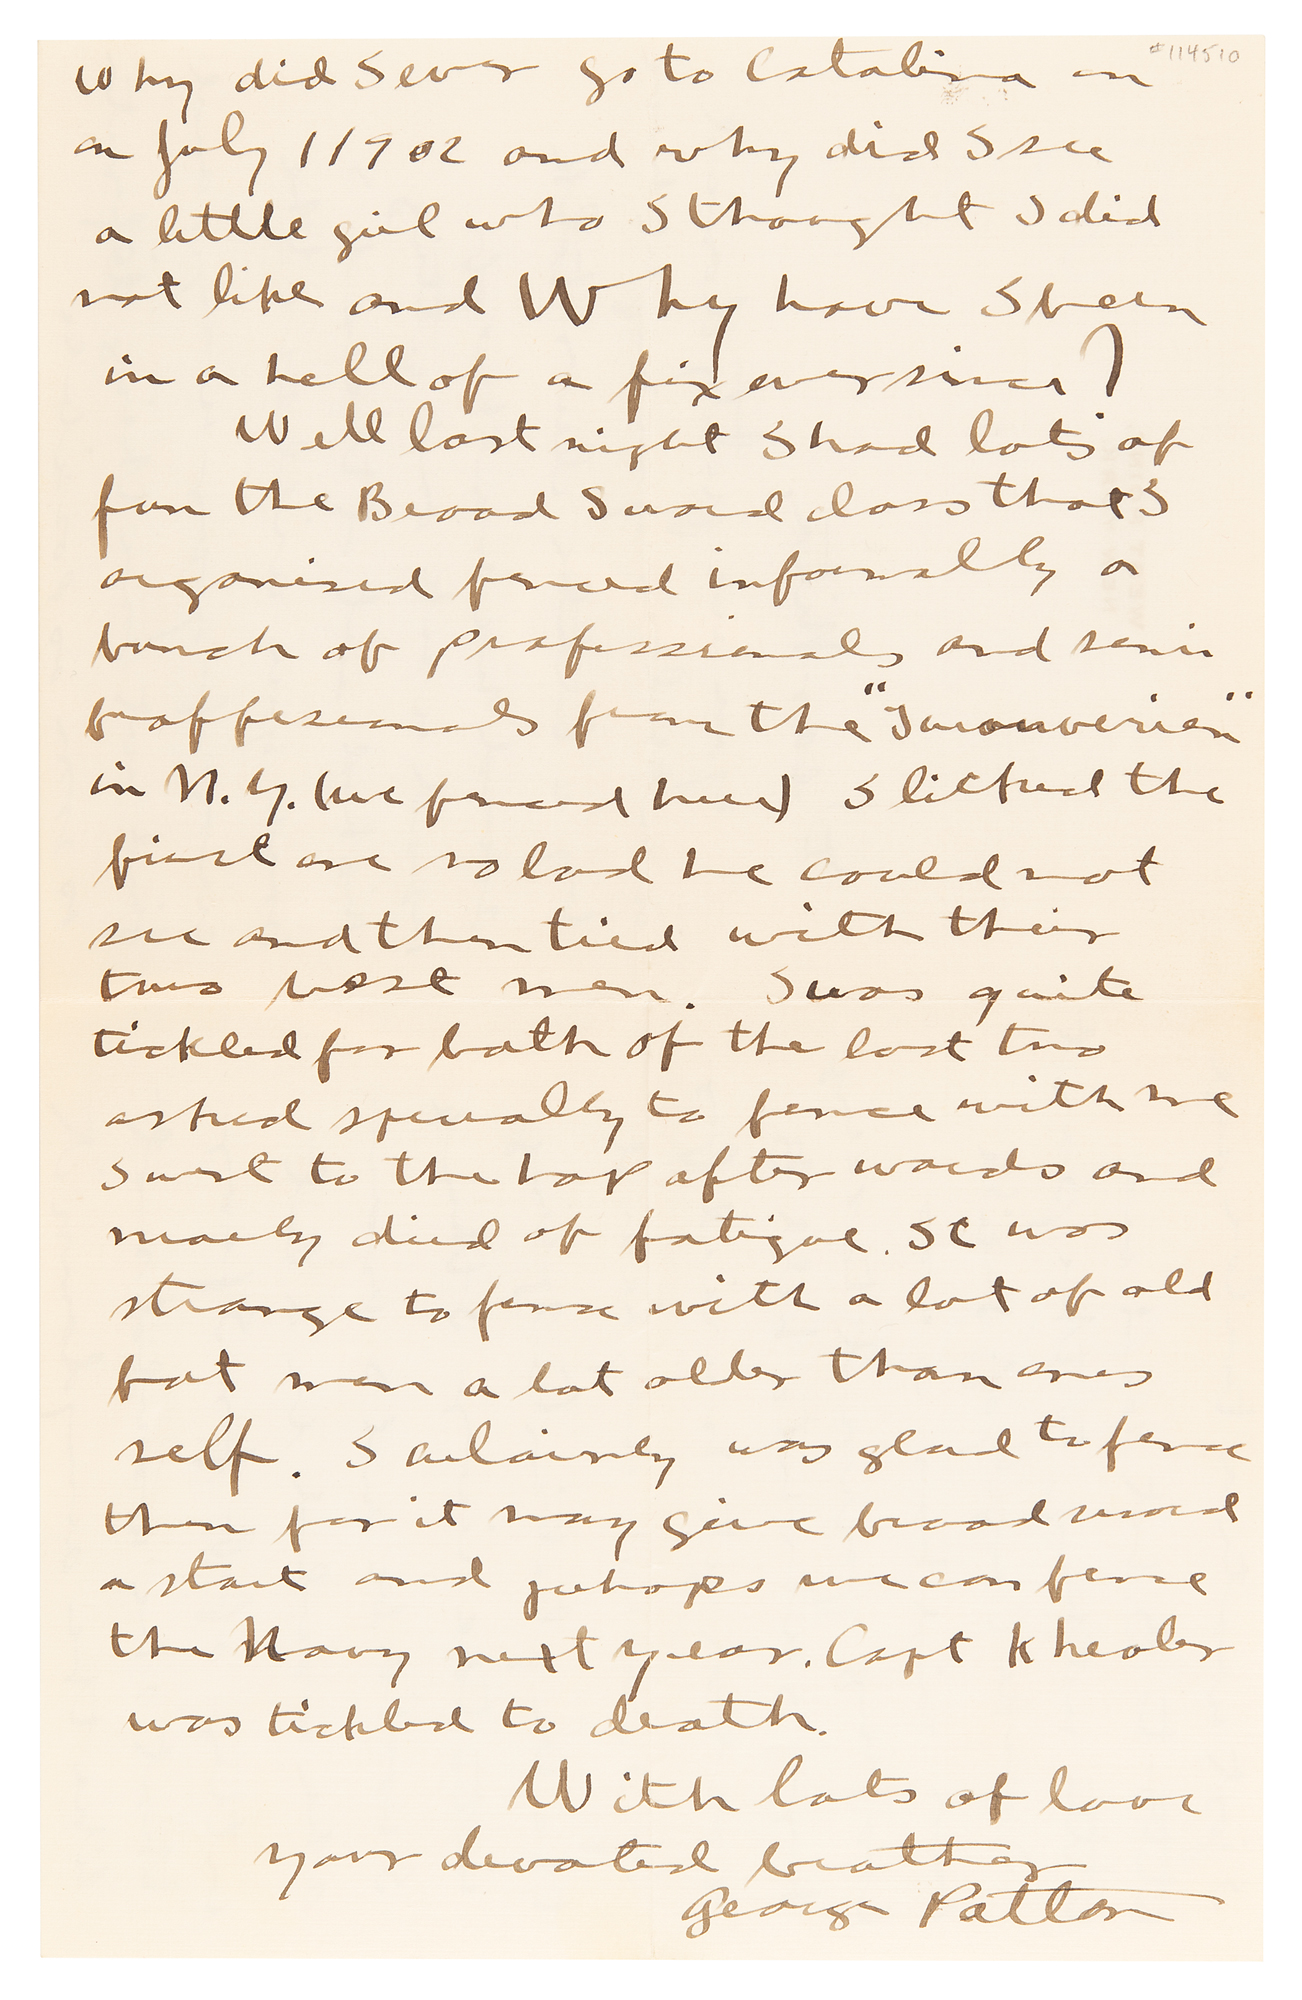 #114510
Why did I ever go to Catalina on
on July 1 1902 and why did I see
a little girl who I thought I did
not like and Why have I been
in a hell of a fix ever since?
Well last night I had lots of
fun the Broad Sword class that I
organised fenced informally a
bunch of professionals and semi
proffesionals from the "
in N.Y. (we fenced here) I licked the
first one so bad he could not
see and then tied with their
two best men. I was quite
tickled for both of the last two
asked specially to fence with me
I went to the hop after wards and
nearly died of fatigue. It was
strange to fence with a lot of old
fat men a lot older than ones
self. I certainly was glad to fence
them for it may give broad sword
a start and perhaps we can fence
the Navy next year. Capt
was tickled to death.
With lots of love
your devoted brother
George Patton